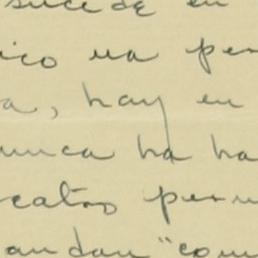 sucede en
ico va per
a, hay en
unca ha ha
catos perm
andan "com